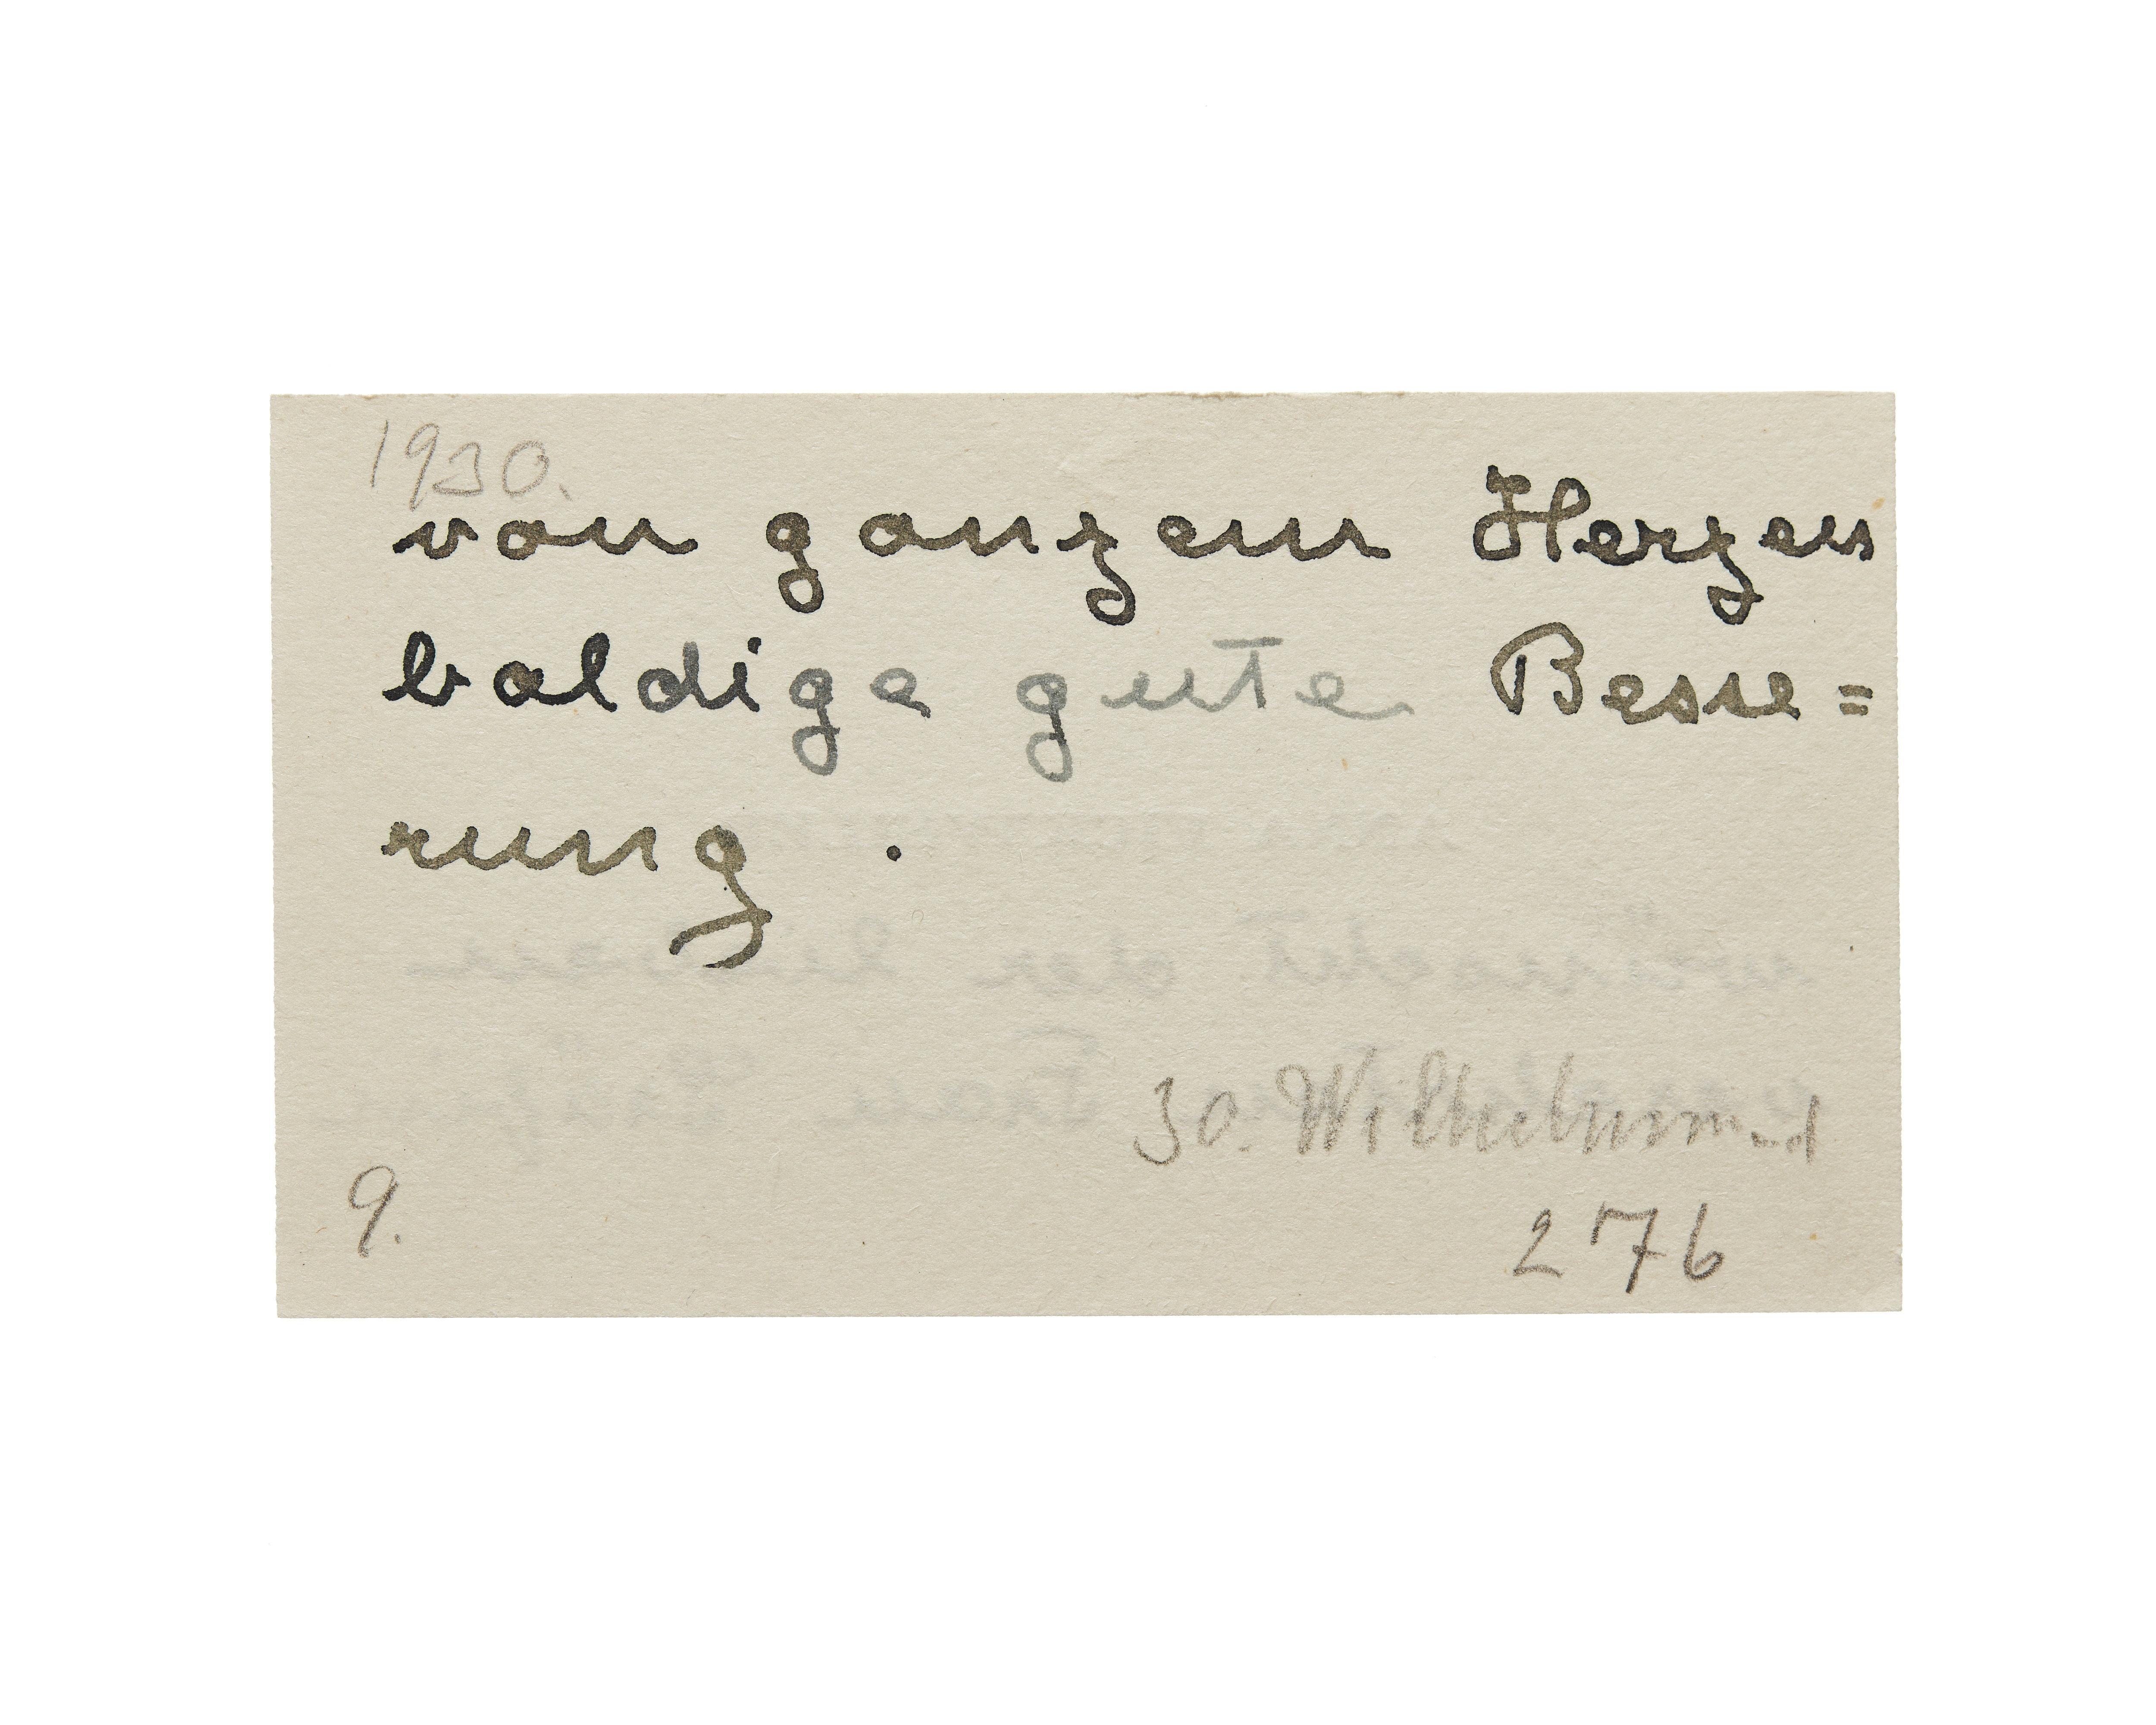 1930.
von ganzem Herzen
baldige gute Besse=
rung .
30. Wilhelmmund
9.
276